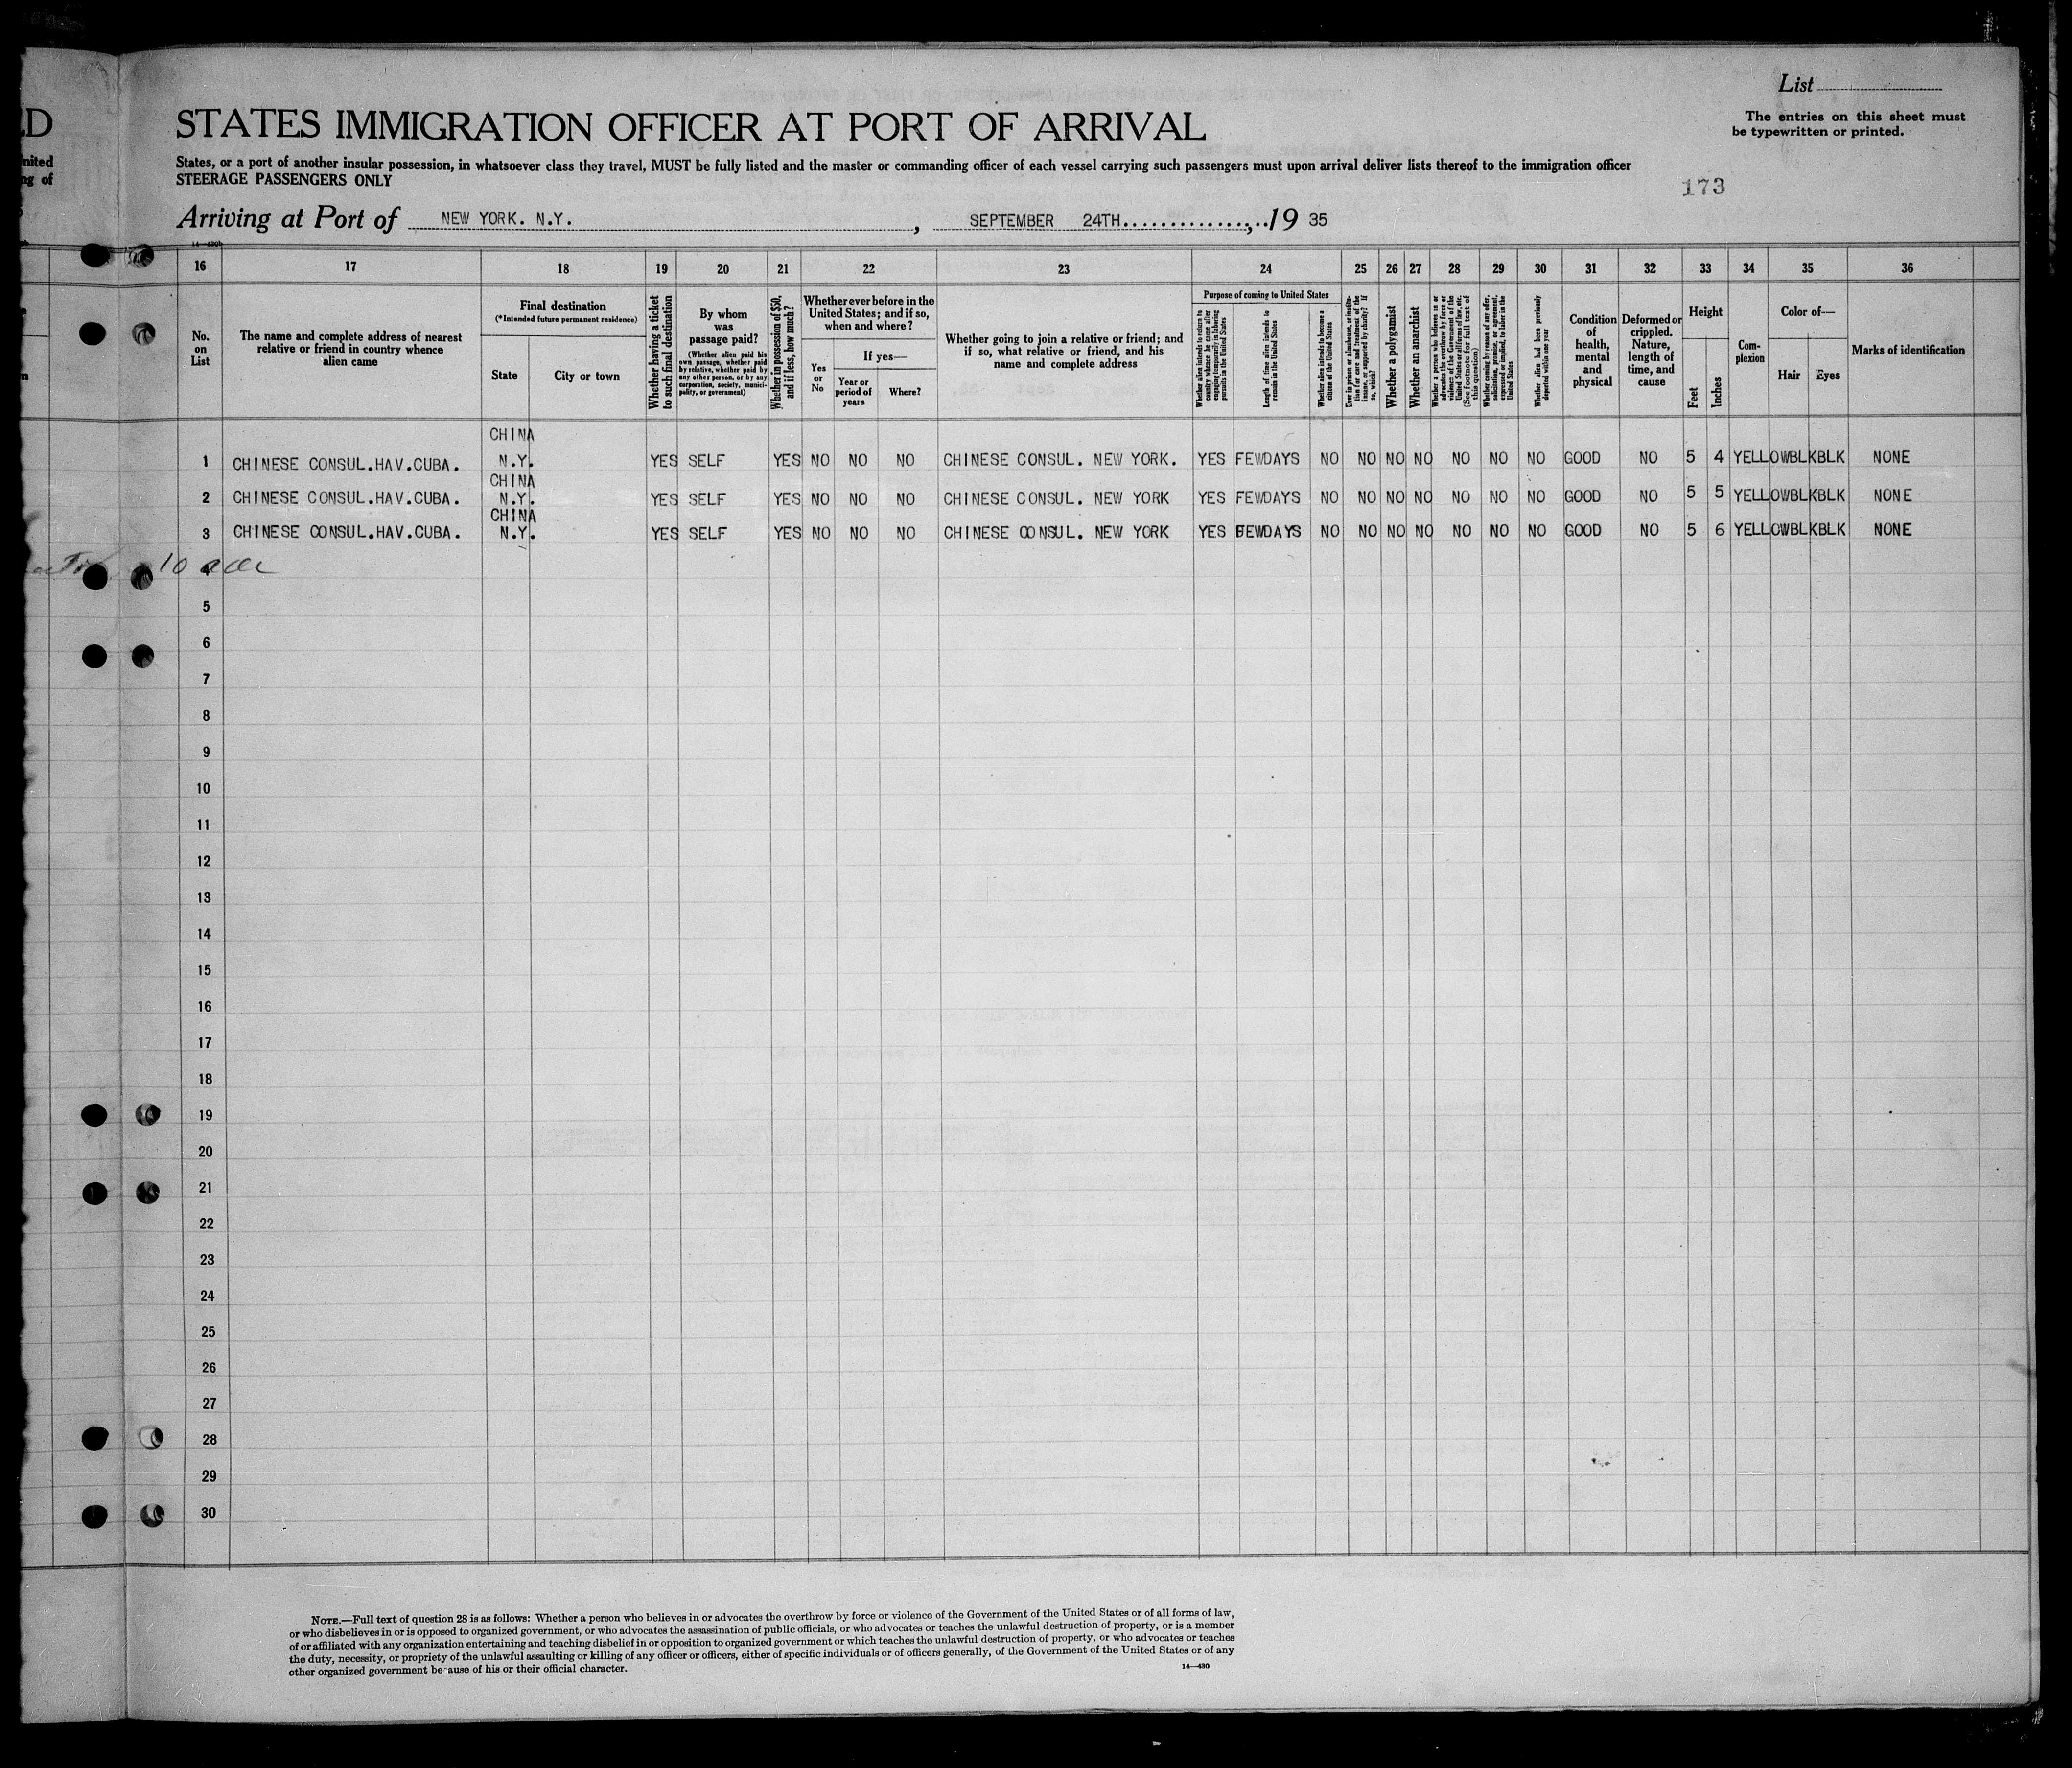 List
The entries on this sheet must
be typewritten or printed.
STATES IMMIGRATION OFFICER AT PORT OF ARRIVAL
States, or a port of another insular possession, in whatsoever class they travel, MUST be fully listed and the master or commanding officer of each vessel carrying such passengers must upon arrival deliver lists thereof to the immigration officer
STEERAGE PASSENGERS ONLY
173
Arriving at Port of NEW YORK. N.Y. , SEPTEMBER 24TH , 19 35
16 17 18 19 20 21 22 23 24 25 26 27 28 29 30 31 32 33 34 35 36
No. on List
The name and complete address of nearest relative or friend in country whence alien came
Final destination
(*Intended future permanent residence)
State
City or town
Whether having a ticket to such final destination
By whom was passage paid?
(Whether alien paid his own passage, whether paid by relative, whether paid by any other person, or by any corporation, society, municipality, or government)
Whether in possession of $50, and if less, how much?
Whether ever before in the United States; and if so, when and where?
Yes or No
If yes—
Year or period of years
Where?
Whether going to join a relative or friend; and if so, what relative or friend, and his name and complete address
Purpose of coming to United States
Whether alien intends to return to country whence he came after engaging temporarily in laboring pursuits in the United States
Length of time alien intends to remain in the United States
Whether alien intends to become a citizen of the United States
Whether a polygamist
Whether an anarchist
Whether alien had been previously deported within one year
Condition of health, mental and physical
Deformed or crippled. Nature, length of time, and cause
Height
Feet
Inches
Com-plexion
Color of—
Hair
Eyes
Marks of identification
CHINA
1 CHINESE CONSUL.HAV.CUBA. N.Y. YES SELF YES NO NO NO CHINESE CONSUL. NEW YORK. YES FEWDAYS NO NO NO NO NO NO NO GOOD NO 5 4 YELLOWBLKBLK NONE
CHINA
2 CHINESE CONSUL.HAV.CUBA. N.Y. YES SELF YES NO NO NO CHINESE CONSUL. NEW YORK YES FEWDAYS NO NO NO NO NO NO NO GOOD NO 5 5 YELLOWBLKBLK NONE
CHINA
3 CHINESE CONSUL.HAV.CUBA. N.Y. YES SELF YES NO NO NO CHINESE CONSUL. NEW YORK YES FEWDAYS NO NO NO NO NO NO NO GOOD NO 5 6 YELLOWBLKBLK NONE
4
5
6
7
8
9
10
11
12
13
14
15
16
17
18
19
20
21
22
23
24
25
26
27
28
29
30
NOTE.—Full text of question 28 is as follows: Whether a person who believes in or advocates the overthrow by force or violence of the Government of the United States or of all forms of law,
or who disbelieves in or is opposed to organized government, or who advocates the assassination of public officials, or who advocates or teaches the unlawful destruction of property, or is a member
of or affiliated with any organization entertaining and teaching disbelief in or opposition to organized government or which teaches the unlawful destruction of property, or who advocates or teaches
the duty, necessity, or propriety of the unlawful assaulting or killing of any officer or officers, either of specific individuals or of officers generally, of the Government of the United States or of any
other organized government because of his or their official character.
14—430